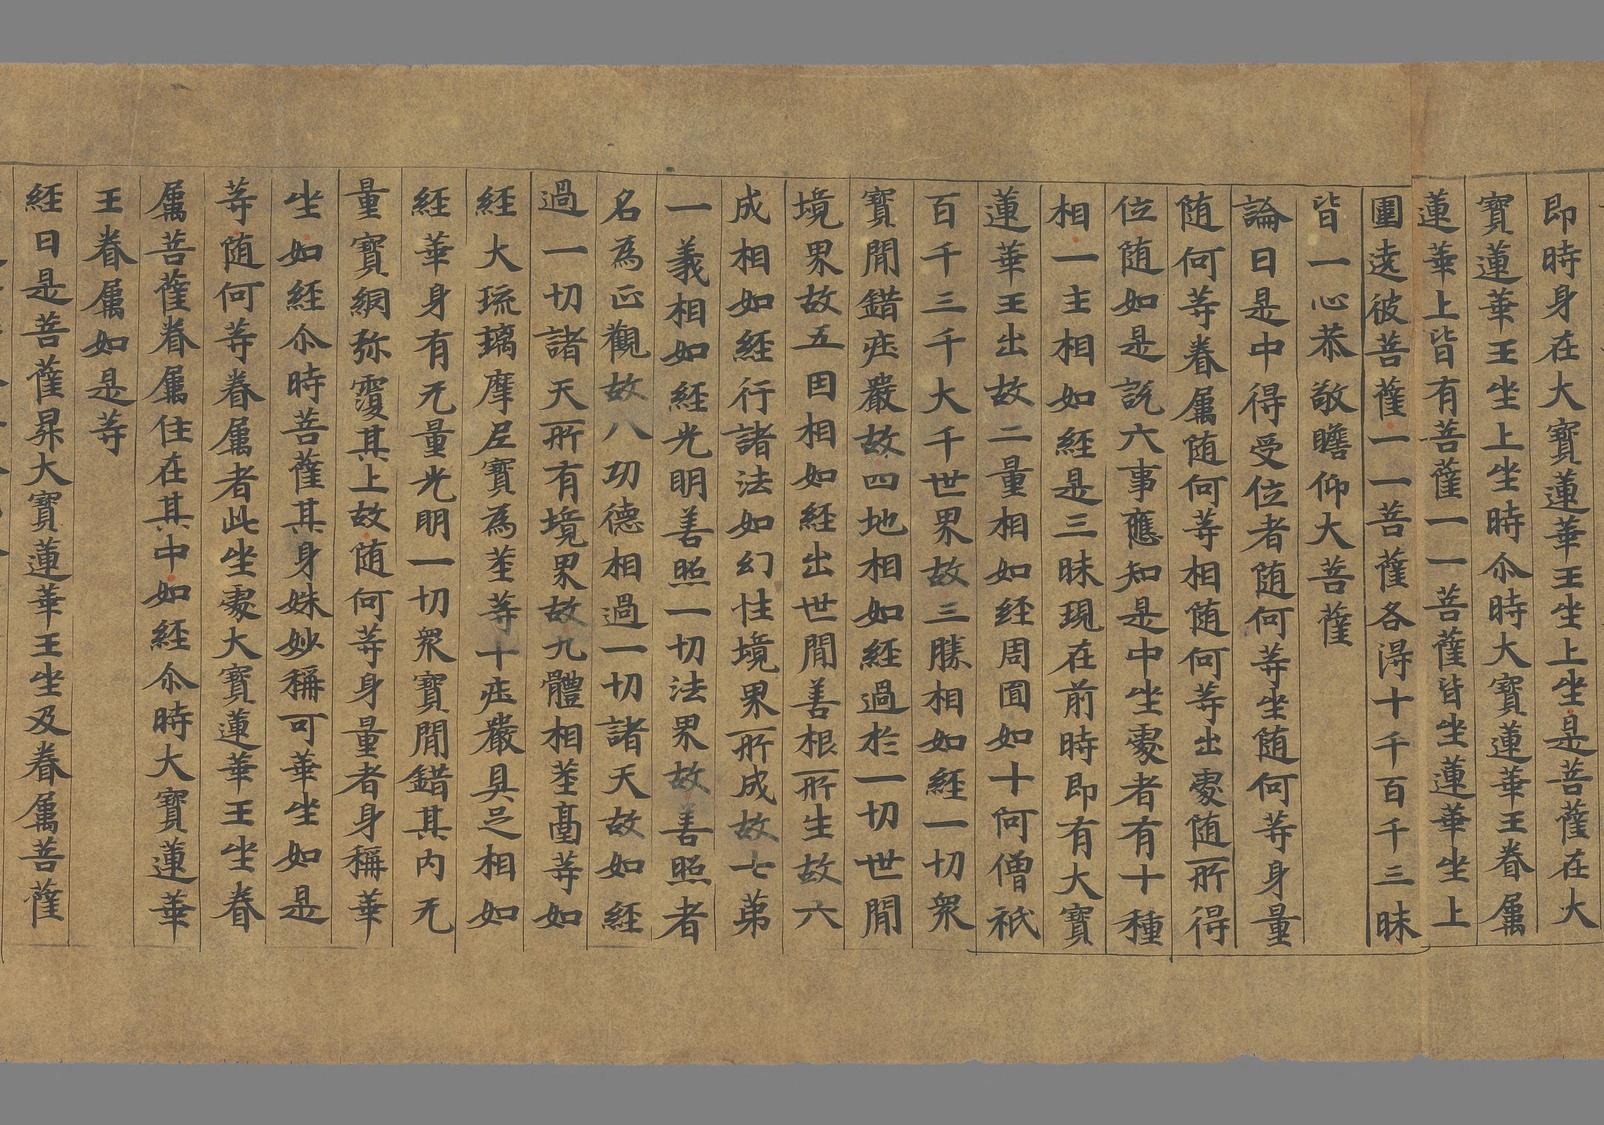 即時身在大寶蓮華王坐上坐是菩薩在大
寶蓮華王坐上坐時尒時大寶蓮華王眷属
蓮華上皆有菩薩一一菩薩皆坐蓮華坐上
圍遶彼菩薩一一菩薩各得十千百千三昧
皆一心恭敬瞻仰大菩薩
論曰是中得受位者随何等坐随何等身量
随何等眷属随何等相随何等出處随所得
位随如是說六事應知是中坐處者有十種
相一主相如經是三昧現在前時即有大寶
蓮華王出故二量相如經周圎如十阿僧祇
百千三千大千世界故三勝相如經一切衆
寶閒錯庄嚴故四地相如經過於一切世閒
境界故五因相如經出世閒善根所生故六
成相如經行諸法如幻性境界所成故七第
一義相如經光明善照一切法界故善照者
名為正觀故八功德相過一切諸天故如經
過一切諸天所有境界故九體相莖臺等如
經大琉璃摩尼寶為莖等十庄嚴具足相如
經華身有无量光明一切衆寶閒錯其内无
量寶網弥覆其上故随何等身量者身稱華
坐如經尒時菩薩其身姝妙稱可華坐如是
等随何等眷属者此坐處大寶蓮華王坐眷
属菩薩眷属住在其中如經尒時大寶蓮華
王眷属如是等
經曰是菩薩昇大寶蓮華王坐及眷属菩薩